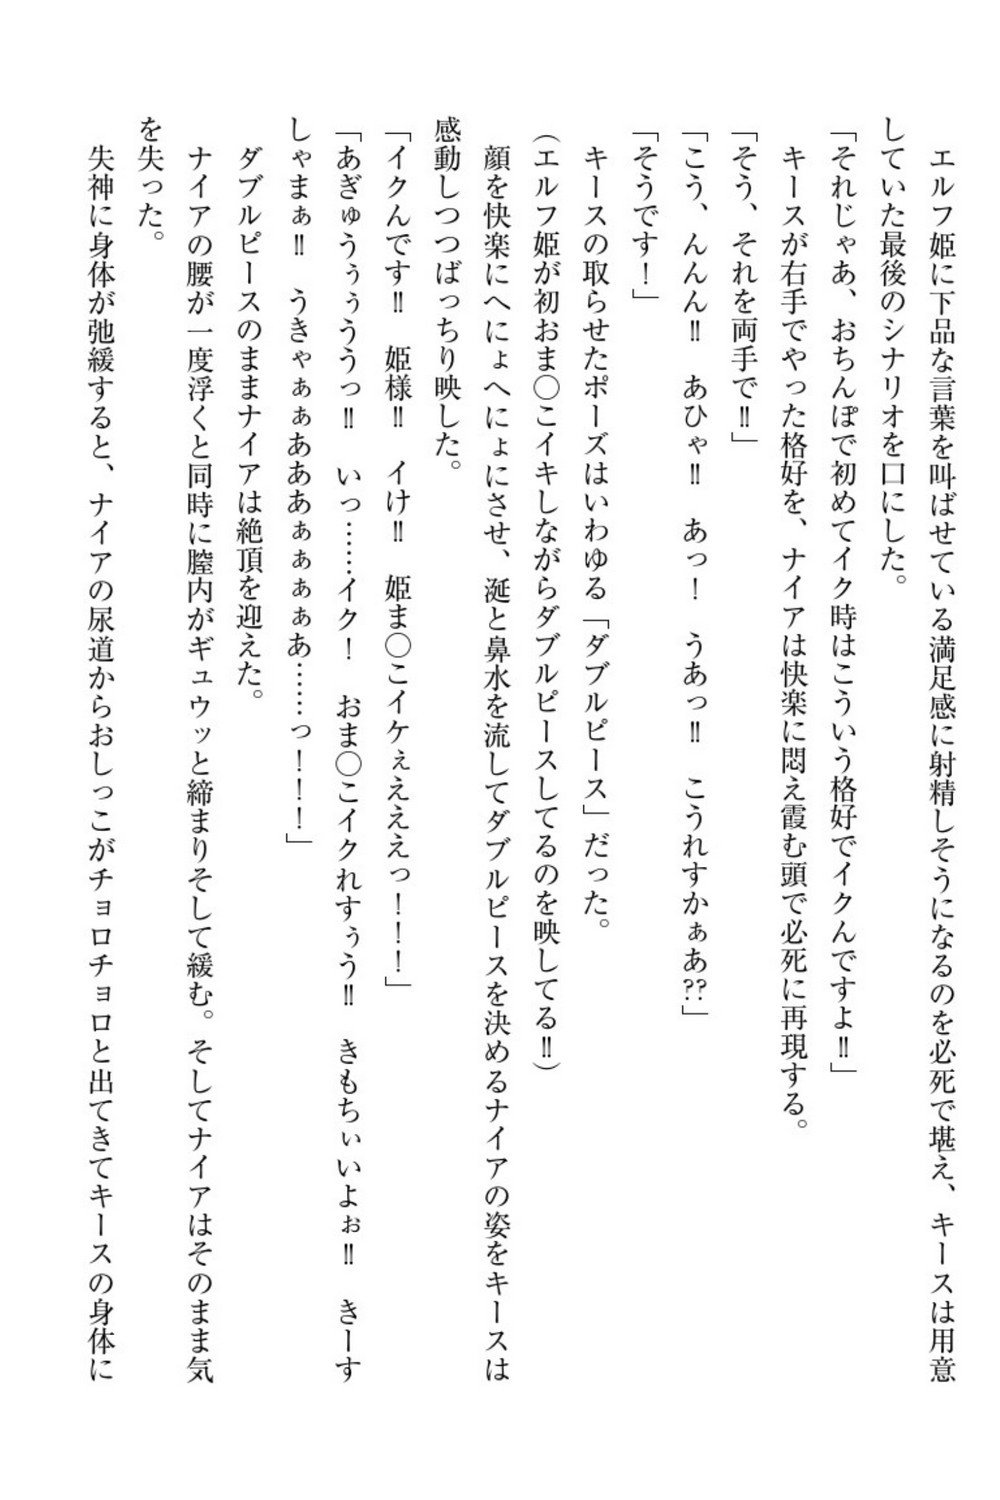 エルフ姫に下品な言葉を叫ばせている満足感に射精しそうになるのを必死で堪え、キースは用意
していた最後のシナリオを口にした。
「それじゃあ、おちんぽで初めてイク時はこういう格好でイクんですよ‼」
キースが右手でやった格好を、ナイアは快楽に悶え霞む頭で必死に再現する。
「そう、それを両手で‼」
「こう、んんん‼　あひゃ‼　あっ！　うあっ‼　こうれすかぁあ??」
「そうです！」
キースの取らせたポーズはいわゆる「ダブルピース」だった。
(エルフ姫が初おま〇こイキしながらダブルピースしてるのを映してる‼)
顔を快楽にへにょへにょにさせ、涎と鼻水を流してダブルピースを決めるナイアの姿をキースは
感動しつつばっちり映した。
「イクんです‼　姫様‼　イけ‼　姫ま〇こイケぇえええっ！！！」
「あぎゅうぅぅううっ‼　いっ……イク！　おま〇こイクれすぅう‼　きもちぃいよぉ‼　きーす
しゃまぁ‼　うきゃぁぁあああぁぁぁぁあ……っ！！！」
ダブルピースのままナイアは絶頂を迎えた。
ナイアの腰が一度浮くと同時に膣内がギュウッと締まりそして緩む。そしてナイアはそのまま気
を失った。
失神に身体が弛緩すると、ナイアの尿道からおしっこがチョロチョロと出てきてキースの身体に